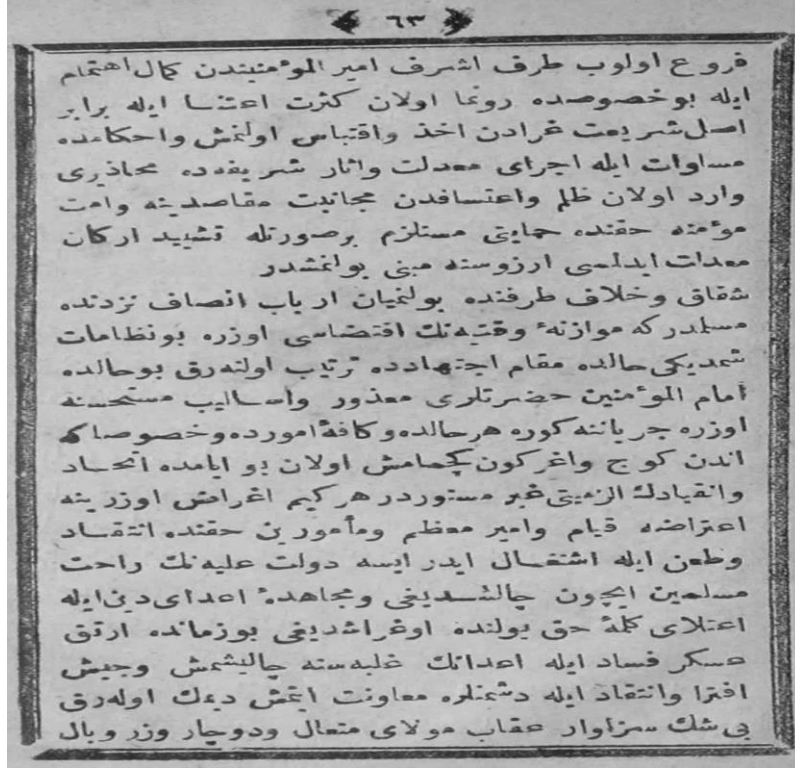 ﴿ ٦٣ ﴾
فروع اولوب طرف اشرف امير المؤمنيندن كمال اهتمام
ايله بو خصوصده رونما اولان كثرت اعتنا ايله برابر
اصل شريعت غرادن اخذ واقتباس اولنمش واحكامده
مساوات ايله اجراى معدلت واثار شريفه‌ده محاذيرى
وارد اولان ظلم واعتسافدن مجانبت مقاصدينه وامت
مؤمنه حقنده حمايتى مستلزم برصورتله تشييد اركان
معدلت ايدلمسى ارزوسنه مبنى بولنمشدر
شقاق وخلاف طرفنده بولنميان ارباب انصاف نزدنده
مسلمدركه موازنهٔ وقتيه‌نك اقتضاسى اوزره بونظامات
شمديكى حالده مقام اجتهادده ترتيب اولنه‌رق بوحالده
امام المؤمنين حضرتلرى معذور واساليب مستحسنه
اوزره جرياننه كوره هرحالده وكافهٔ امورده وخصوصا كه
اندن كوج واغر كون كچمامش اولان بو ايامده اتحاد
وانقيادك الزميتى غير مستوردر هركيم اغراض اوزرينه
اعتراضه قيام وامير معظم ومأمورين حقنده انتقاد
وطعن ايله اشتغال ايدر ايسه دولت عليه‌نك راحت
مسلمين ايچون چالشديغى ومجاهدهٔ اعداى دين ايله
اعتلاى كلهٔ حق يولنده اوغراشديغى بوزمانده ارتق
عسكر فساد ايله اعدانك غلبه‌سنه چاليشمش وجيش
افترا وانتقاد ايله دشمنلره معاونت ايتمش ديمك اوله‌رق
بى شك سزاوار عقاب مولاى متعال ودوچار وزر و بال